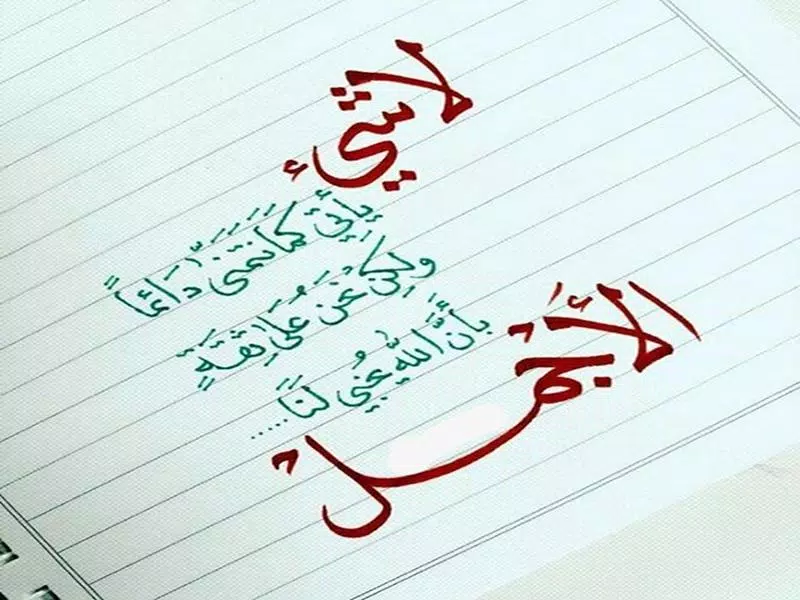 لا شيء
يأتي كما نتمنى دائماً
ولكن نحن على ثقة
بأن الله يخبئ لنا.....
الأجمل